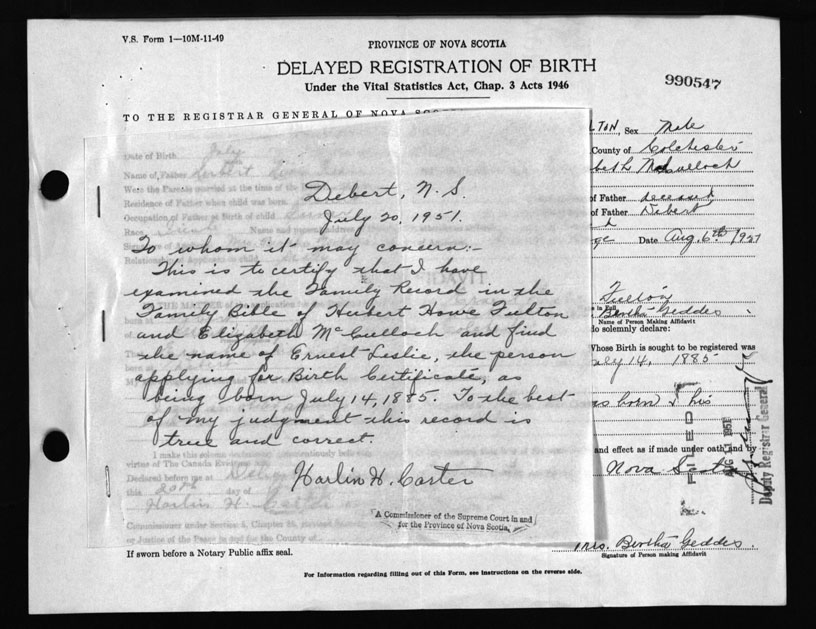 V.S. Form 1—10M-11-49
PROVINCE OF NOVA SCOTIA
DELAYED REGISTRATION OF BIRTH
Under the Vital Statistics Act, Chap. 3 Acts 1946
990547
TO THE REGISTRAR GENERAL OF NOVA
LTON, Sex Male
County of Colchester
Date of Birth July
Name of Father Herbert
Were the Parents married at the time of the
Residence of Father when child was born.
Occupation of Father at Birth of child
Race
of Father deceased
of Father Debert
Date Aug. 6th 1951
Debert, N.S.
July 20, 1951.
To whom it may concern:-
This is to certify that I have
examined the Family Record in the
Family Bible of Hubert Howe Fulton
and Elizabeth McCulloch and find
the name of Ernest Leslie, the person
applying for Birth Certificate, as
being born July 14, 1885. To the best
of my judgment this record is
true and correct.
Harlin H. Carter
A Commissioner of the Supreme Court in and
for the Province of Nova Scotia.
Fulton
Bertha Geddes
Name of Person Making Affidavit
do solemnly declare:
Whose Birth is sought to be registered was
July 14, 1885
born & his
and effect as if made under oath and by
Nova Scotia
FILED
1951
Deputy Registrar General
Declared before me at
this 20th day of
Harlin H.
or Justice of the Peace in and for the County of
If sworn before a Notary Public affix seal.
Mrs. Bertha Geddes.
Signature of Person making Affidavit
For Information regarding filling out of this Form, see instructions on the reverse side.